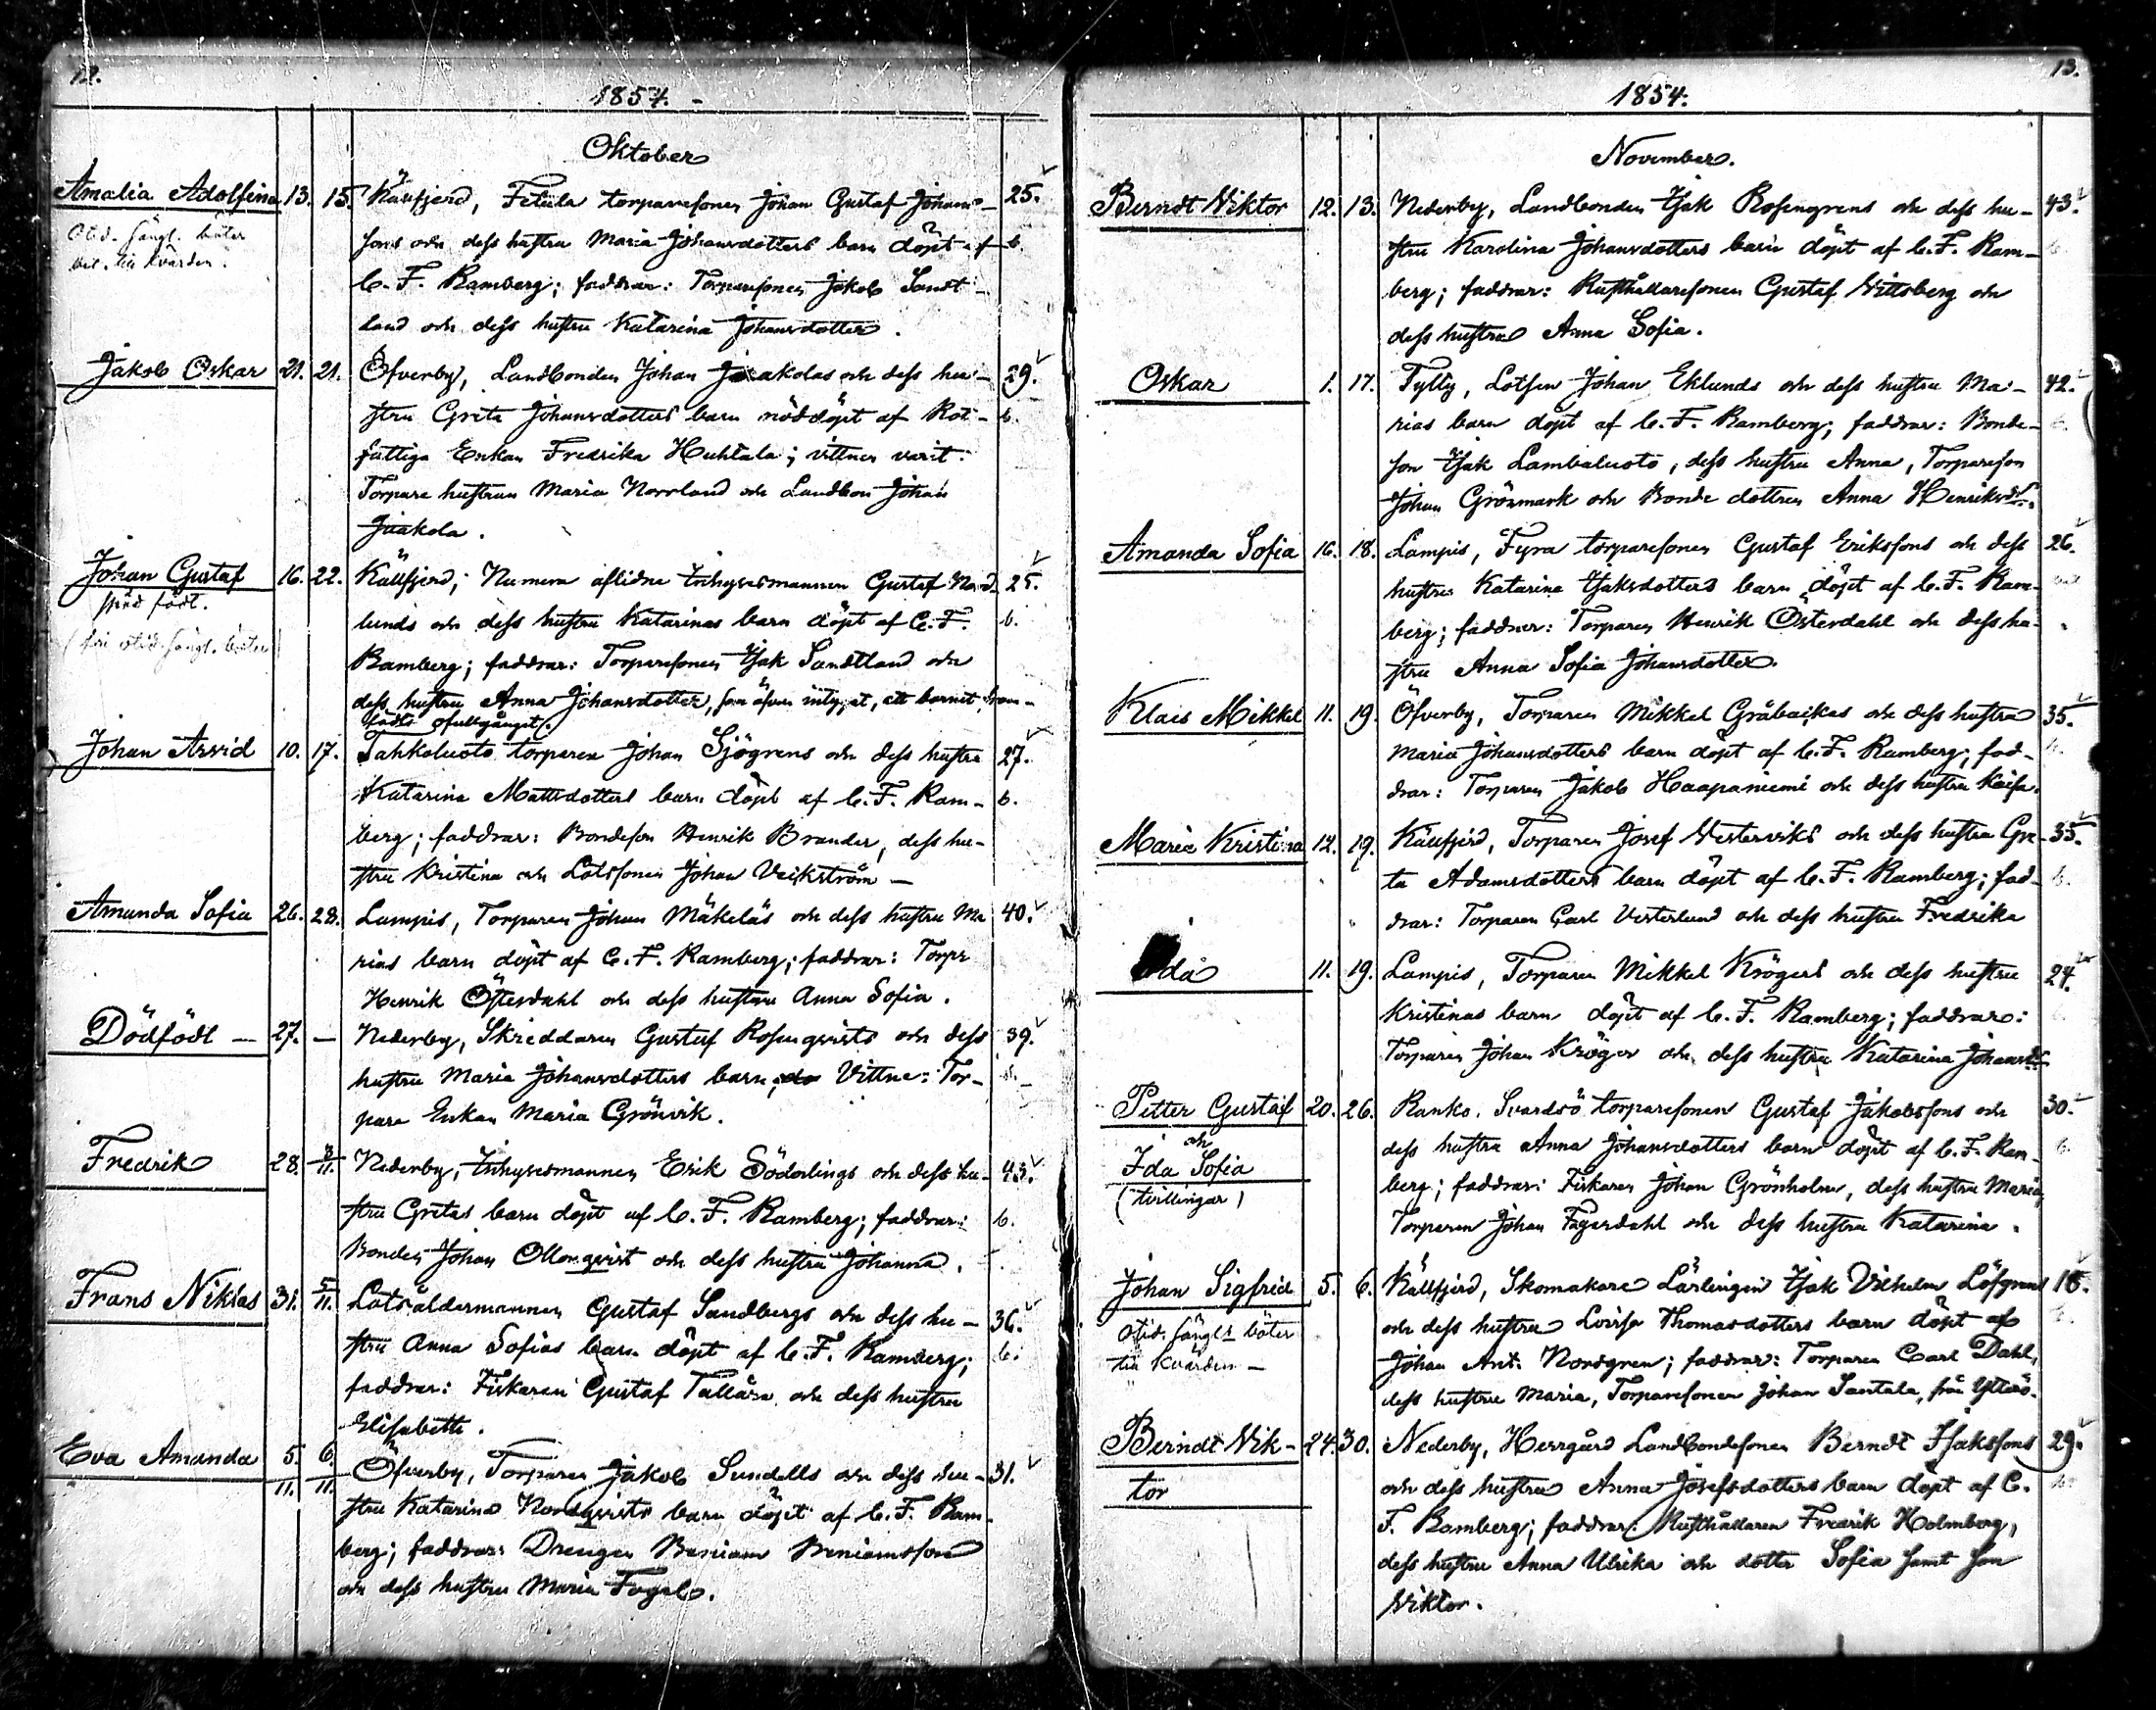 12.
1854. -
Oktober
Amalia Adolfina 13. 15. Källfjerd, Fetula torparesonen Johan Gustaf Johans- 25.
sons och dess hustru Maria Johansdotters barn döpt af b.
C. F. Ramberg; faddrar: Torparesonen Jakob Sandt-
land och dess hustru Katarina Johansdotter.
Jakob Oskar 21. 21. Öfverby, Landbonden Johan Jaakolas och dess hu- 29.
stru Greta Johansdotters barn nöddöpt af Rot- b.
fattiga Enkan Fredrika Huhtala; vittnen varit:
Torpare hustrun Maria Norrland och Landbon Johan
Jaakola.
Johan Gustaf 16. 22. Källfjerd, Numera aflidne Inhysesmannen Gustaf Nord- 25.
lunds och dess hustru Katarinas barn döpt af C. F. b.
Ramberg; faddrar: Torparesonen Isak Sandtland och
dess hustru Anna Johansdotter, som äfven intygat, att barnet fram-
födts ofullgånget.
Johan Arvid 10. 17. Tahkoluoto torparen Johan Sjögrens och dess hustru 27.
Katarina Mattsdotters barn döpt af C. F. Ram- b.
berg; faddrar: Bondeson Henrik Brander, dess hu-
stru Kristina och Lotssonen Johan Veikström -
Amanda Sofia 26. 28. Lampis, Torparen Johan Mäkeläs och dess hustru Ma 40.
rias barn döpt af C. F. Ramberg; faddrar: Torpr
Henrik Österdahl och dess hustru Anna Sofia.
Dödfödt - 27. - Nederby, Skräddaren Gustaf Rosenqvists och dess 39.
hustru Maria Johansdotters barn; Vittne: Tor-
pare Enkan Maria Grönvik.
Fredrik 28. 3/11. Nederby, Inhysesmannen Erik Söderlings och dess hu- 43.
stru Gretas barn döpt af C. F. Ramberg; faddrar: b.
Bonden Johan Ollonqvist och dess hustru Johanna.
Frans Niklas 31. 5/11. Lotsåldermannen Gustaf Sandbergs och dess hu- 36.
stru Anna Sofias barn döpt af C. F. Ramberg; b.
faddrar: Fiskaren Gustaf Tallära och dess hustru
Elisabetta.
Eva Amanda 5/11. 6/11. Öfverby, Torparen Jakob Sundells och dess hu- 31.
stru Katarina Nordqvists barn döpt af C. F. Ram-
berg; faddrar: Drengen Beniam Beniamsson
och dess hustru Maria Fogel.
13.
1854.
November.
Berndt Viktor 12. 13. Nederby, Landbonden Isak Rosengrens och dess hu- 43.
stru Karolina Johansdotters barn döpt af C. F. Ram-
berg; faddrar: Rusthållaresonen Gustaf Vittsberg och
dess hustru Anna Sofia.
Oskar 1. 17. Tylly, Lotsen Johan Eklunds och dess hustru Ma- 42.
rias barn döpt af C. F. Ramberg; faddrar: Bonde-
son Isak Lambaluoto, dess hustru Anna, Torpareson
Johan Grönmark och Bonde dottren Anna Henriksdr.
Amanda Sofia 16. 18. Lampis, Fyra torparesonen Gustaf Erikssons och dess 26.
hustru Katarina Isaksdotters barn döpt af C. F. Ram-
berg; faddrar: Torparen Henrik Österdahl och dess hu-
stru Anna Sofia Johansdotter.
Klas Mikkel 11. 19. Öfverby, Torparen Mikkel Gråbackas och dess hustru 35.
Maria Johansdotters barn döpt af C. F. Ramberg; fad-
drar: Torparen Jakob Haapaniemi och dess hustru Kaisa.
Maria Kristina 12. 19. Källfjerd, Torparen Josef Vesterviks och dess hustru Gre- 35.
ta Adamsdotters barn döpt af C. F. Ramberg; fad- b.
drar: Torparen Carl Vesterlund och dess hustru Fredrika
Ida 11. 19. Lampis, Torparen Mikkel Krögers och dess hustru 24.
Kristinas barn döpt af C. F. Ramberg; faddrar:
Torparen Johan Kröger och dess hustru Katarina Johansdr
Petter Gustaf 20. 26. Ranko, Svardsö torparesonen Gustaf Jakobssons och 30.
och dess hustru Anna Johansdotters barn döpt af C. F. Ram- b.
Ida Sofia berg; faddrar: Fiskaren Johan Grönholm, dess hustru Maria,
(tvillingar) Torparen Johan Fagerdahl och dess hustru Katarina.
Johan Sigfrid 5. 6. Källfjerd, Skomakare Lärlingen Isak Vilhelm Löfgrens 18.
och dess hustru Lovisa Thomasdotters barn döpt af
Johan Ant. Nordgren; faddrar: Torparen Carl Dahl,
dess hustru Maria, Torparesonen Johan Santala, från Ytterö.
Berndt Vik- 24. 30. Nederby, Herrgård Landbondesonen Berndt Isakssons 29.
tor och dess hustru Anna Josefsdotters barn döpt af C.
F. Ramberg; faddrar: Rusthållaren Fredrik Holmberg,
dess hustru Anna Ulrika och dotter Sofia samt son
Viktor.